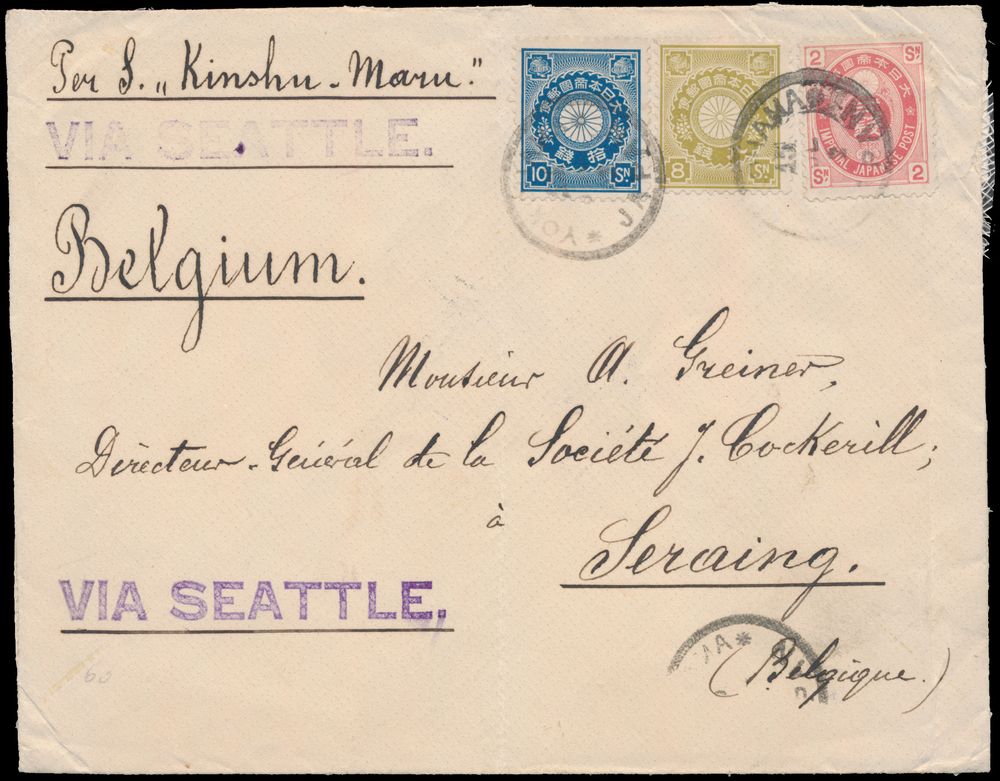 Per S. „Kinshu-Maru."
VIA SEATTLE.
Belgium.
大日本帝國郵便
拾錢
10 SN
大日本帝國郵便
8 SN
2 SN
大日本帝國郵便
IMPERIAL JAPANESE POST
SN 2
Monsieur A. Greiner,
Directeur-Général de la Société J. Cockerill;
à
Seraing.
VIA SEATTLE.
(Belgique.)
60